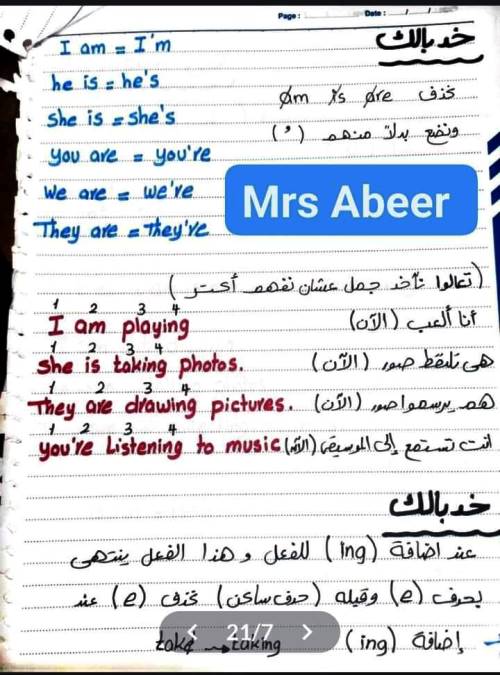 Page : Date : / /
I am = I'm
خد بالك
he is = he's
نحذف am is are
she is = she's
ونضع بدلاً منهم ( ' )
you are = you're
we are = we're
Mrs Abeer
They are = they're
(تعالوا نأخد جمل عشان نفهم أكتر)
1 2 3 4
I am playing أنا ألعب (الآن)
1 2 3 4
she is taking photos. هى تلتقط صور (الآن)
1 2 3 4
They are drawing pictures. هم يرسموا صور (الآن)
1 2 3 4
you're Listening to music انت تستمع إلى الموسيقى (الآن)
خد بالك
عند اضافة (ing) للفعل و هذا الفعل ينتهى
بحرف (e) وقبله (حرف ساكن) نحذف (e) عند
إضافة (ing) take → taking
21/7